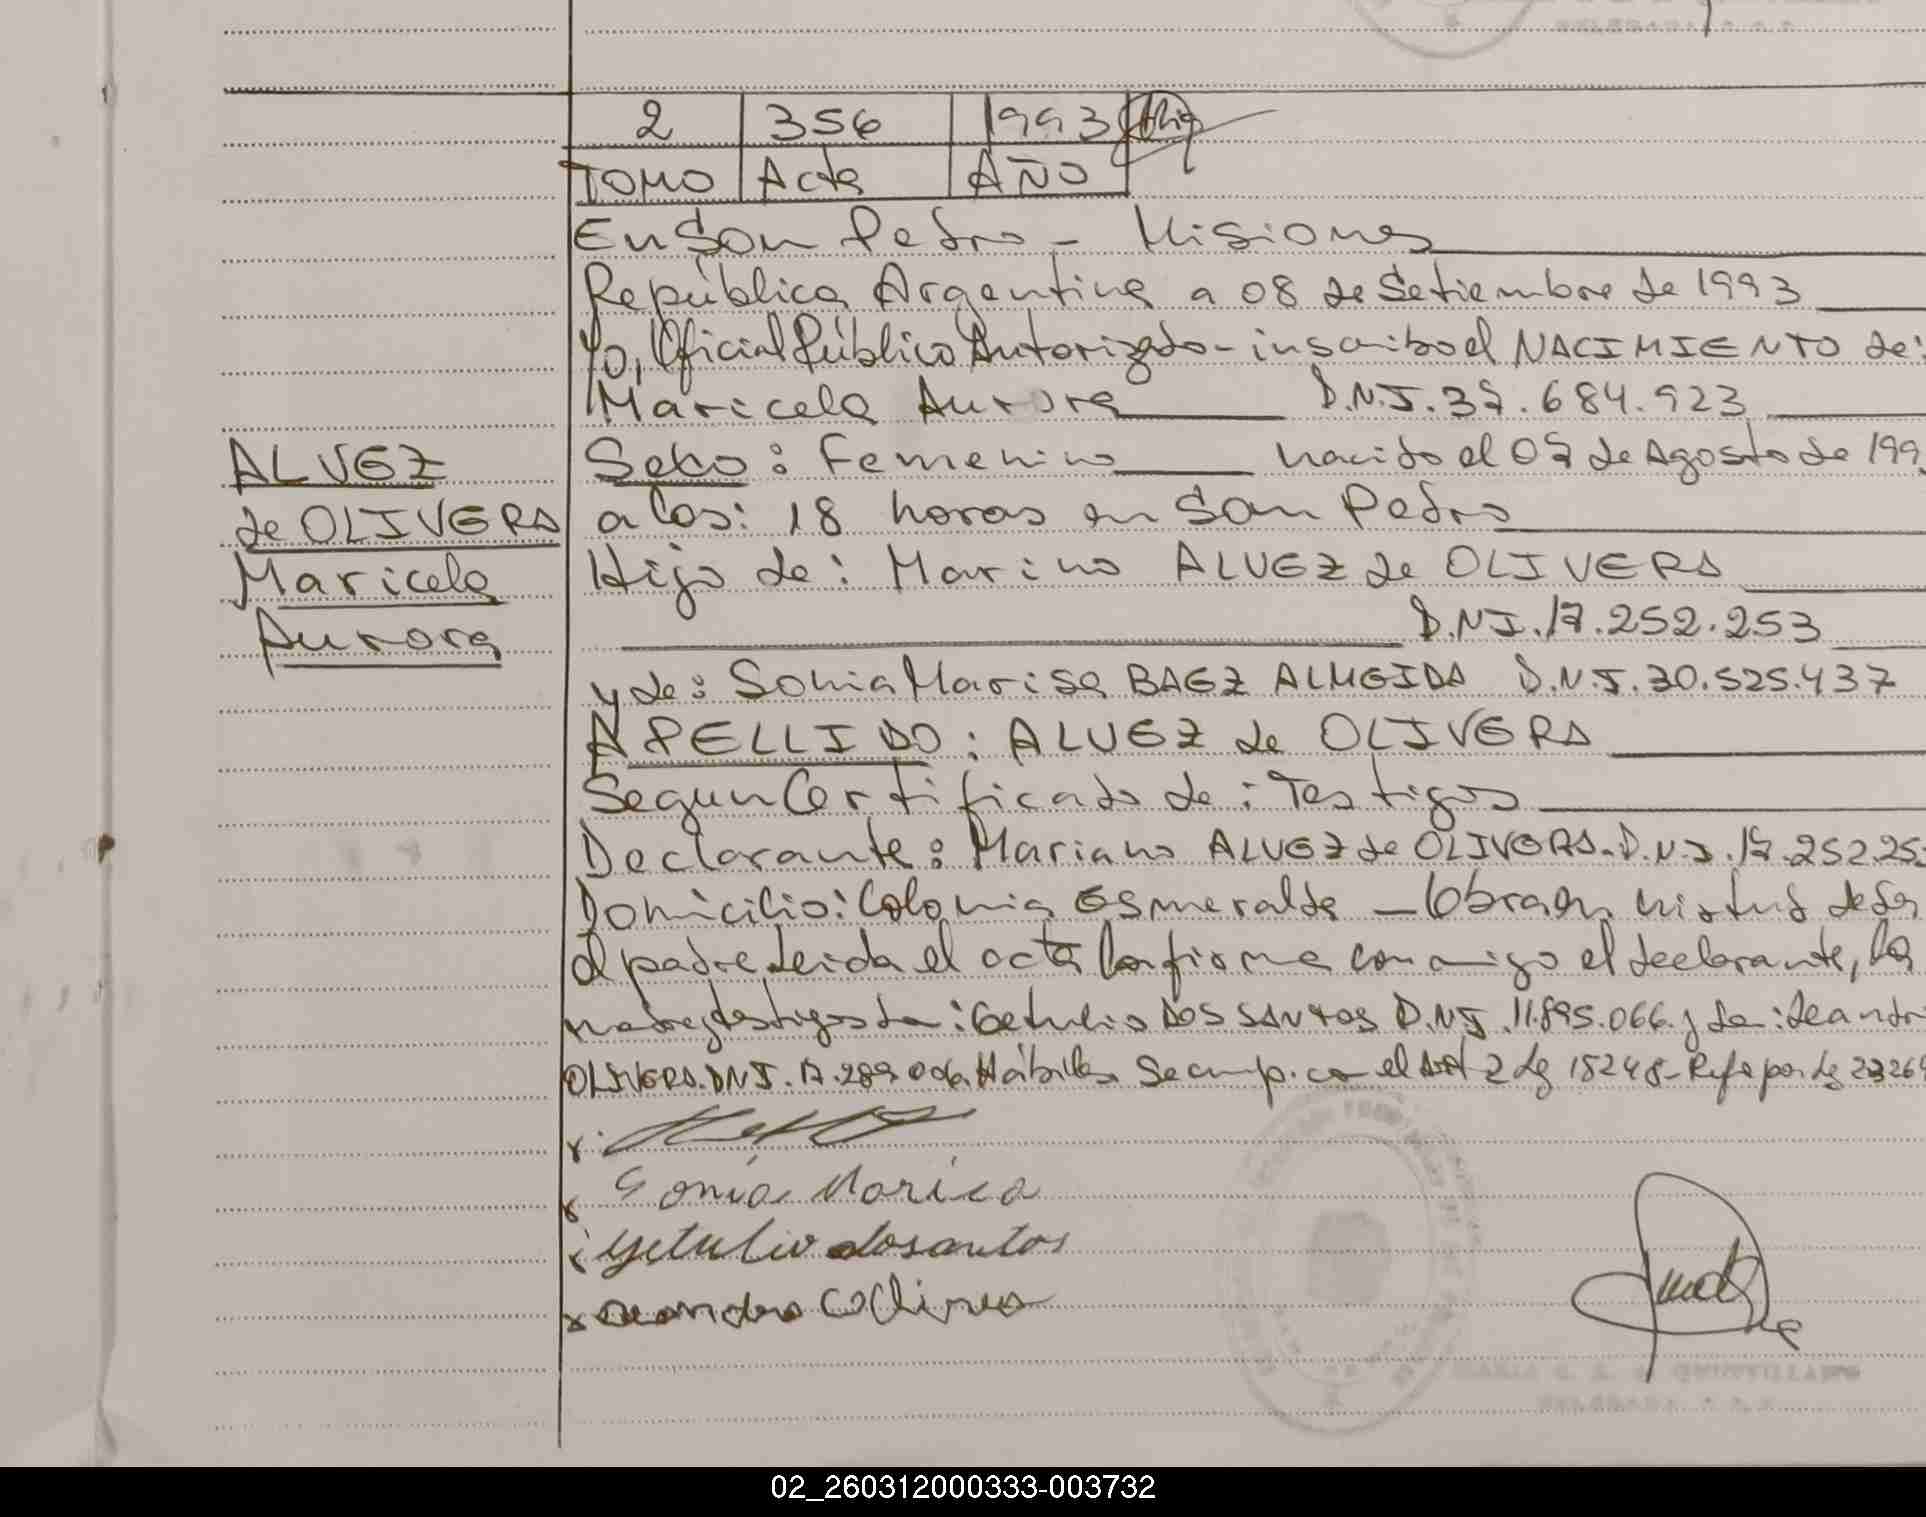 2 356 1993
TOMO Acta AÑO
En San Pedro - Misiones
República Argentina a 08 de Setiembre de 1993
Yo, Oficial Público Autorizado - inscribo el NACIMIENTO de:
Maricela Aurora D.N.I. 37.684.923
ALVEZ
de OLIVERA
Maricela
Aurora
Sexo: Femenino nacido el 07 de Agosto de 199
a las: 18 horas en San Pedro
Hijo de: Marino ALVEZ de OLIVERA
D.N.I. 17.252.253
y de: Sonia Marisa BAEZ ALMEIDA D.N.I. 30.525.437
APELLIDO: ALVEZ de OLIVERA
Segun Certificado de: Testigos
Declarante: Mariano ALVEZ de OLIVERA. D.N.I. 17.252.25
Domicilio: Colonia Esmeralda - Obra en virtud de ser
el padre Leida el acta la firma conmigo el declarante, la
madre y testigos Da: Getulio DOS SANTOS D.N.I. 11.895.066. y Da: Leandro
OLIVERA. DNI. 17.289.006 Hábiles Se cump. con el Art 2 Ley 18248 - Ref por Ley 23264
Sonia Marisa
Getulio dosantos
02_260312000333-003732